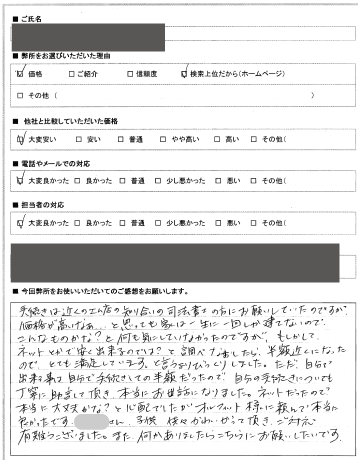 ■ ご氏名
■ 弊所をお選びいただいた理由
☑ 価格 □ ご紹介 □ 信頼度 ☑ 検索上位だから(ホームページ)
□ その他 ( )
■ 他社と比較していただいた価格
☑ 大変安い □ 安い □ 普通 □ やや高い □ 高い □ その他(
■ 電話やメールでの対応
☑ 大変良かった □ 良かった □ 普通 □ 少し悪かった □ 悪い □ その他(
■ 担当者の対応
☑ 大変良かった □ 良かった □ 普通 □ 少し悪かった □ 悪い □ その他(
■ 今回弊所をお使いいただいてのご感想をお願いします。
手続きは近くの工ム店の知り合いの司法書士の方にお願いしていたのですが、
価格が高いなぁ…と思っても家は一生に一回しか建てないので、
こんなものかな?と何も気にしていなかったのですが、もしかして
ネットとかで安く出来るのでは?と調べなおしたら、半額近くになった
ので、とても満足しています。と言うよりびっくりしました。ただ、自分で
出来る事は自分で手続きしての半額だったので、自分の手続きについても
丁寧に助言して頂き、本当にお世話になりました。ネットだったので
本当に大丈夫かな?と心配でしたが 様に頼んで本当に
良かったです。 さん、子供 かわいがって頂き、ご対応
有難うございました。また、何かありましたらこちらにお願いしたいです。